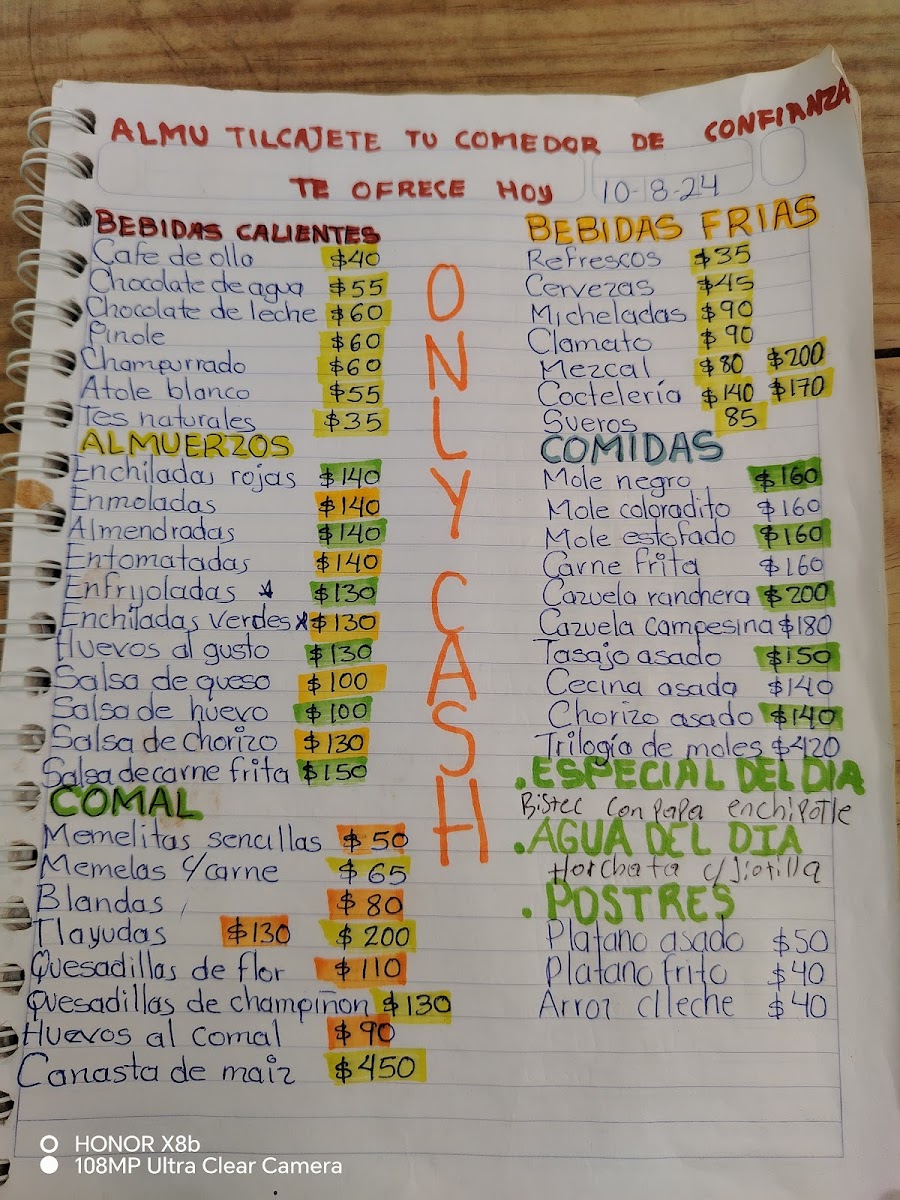 ALMU TILCAJETE TU COMEDOR DE CONFIANZA
TE OFRECE HOY 10-18-24
BEBIDAS CALIENTES
Cafe de ollo $40
Chocolate de agua $55
Chocolate de leche $60
Pinole $60
Champurrado $60
Atole blanco $55
Tes naturales $35
ALMUERZOS
Enchiladas rojas $140
Enmoladas $140
Almendradas $140
Entomatadas $140
Enfrijoladas * $130
Enchiladas verdes * $130
Huevos al gusto $130
Salsa de queso $100
Salsa de huevo $100
Salsa de chorizo $130
Salsa de carne frita $150
COMAL
Memelitas sencillas $50
Memelas c/carne $65
Blandas $80
Tlayudas $130 $200
Quesadillas de flor $110
Quesadillas de champiñon $130
Huevos al comal $90
Canasta de maiz $450
ONLY CASH
BEBIDAS FRIAS
Refrescos $35
Cervezas $45
Micheladas $90
Clamato $90
Mezcal $80 $200
Coctelería $140 $170
Sueros 85
COMIDAS
Mole negro $160
Mole coloradito $160
Mole estofado $160
Carne frita $160
Cazuela ranchera $200
Cazuela campesina $180
Tasajo asado $150
Cecina asada $140
Chorizo asado $140
Trilogía de moles $420
.ESPECIAL DEL DIA
Bistec con papa enchipotle
.AGUA DEL DIA
Horchata c/Jiotilla
.POSTRES
Platano asado $50
Platano frito $40
Arroz c/leche $40
HONOR X8b
108MP Ultra Clear Camera